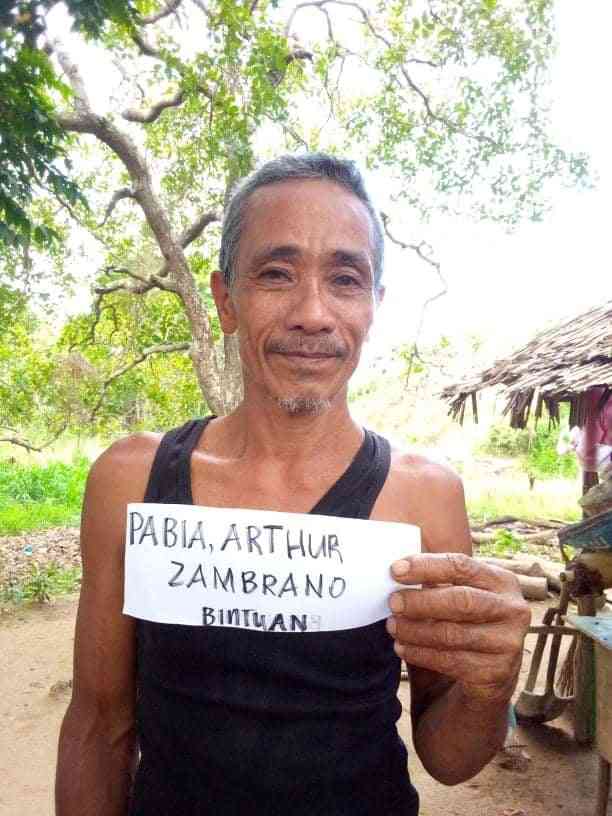 PABIA, ARTHUR
ZAMBRANO
BINTUAN